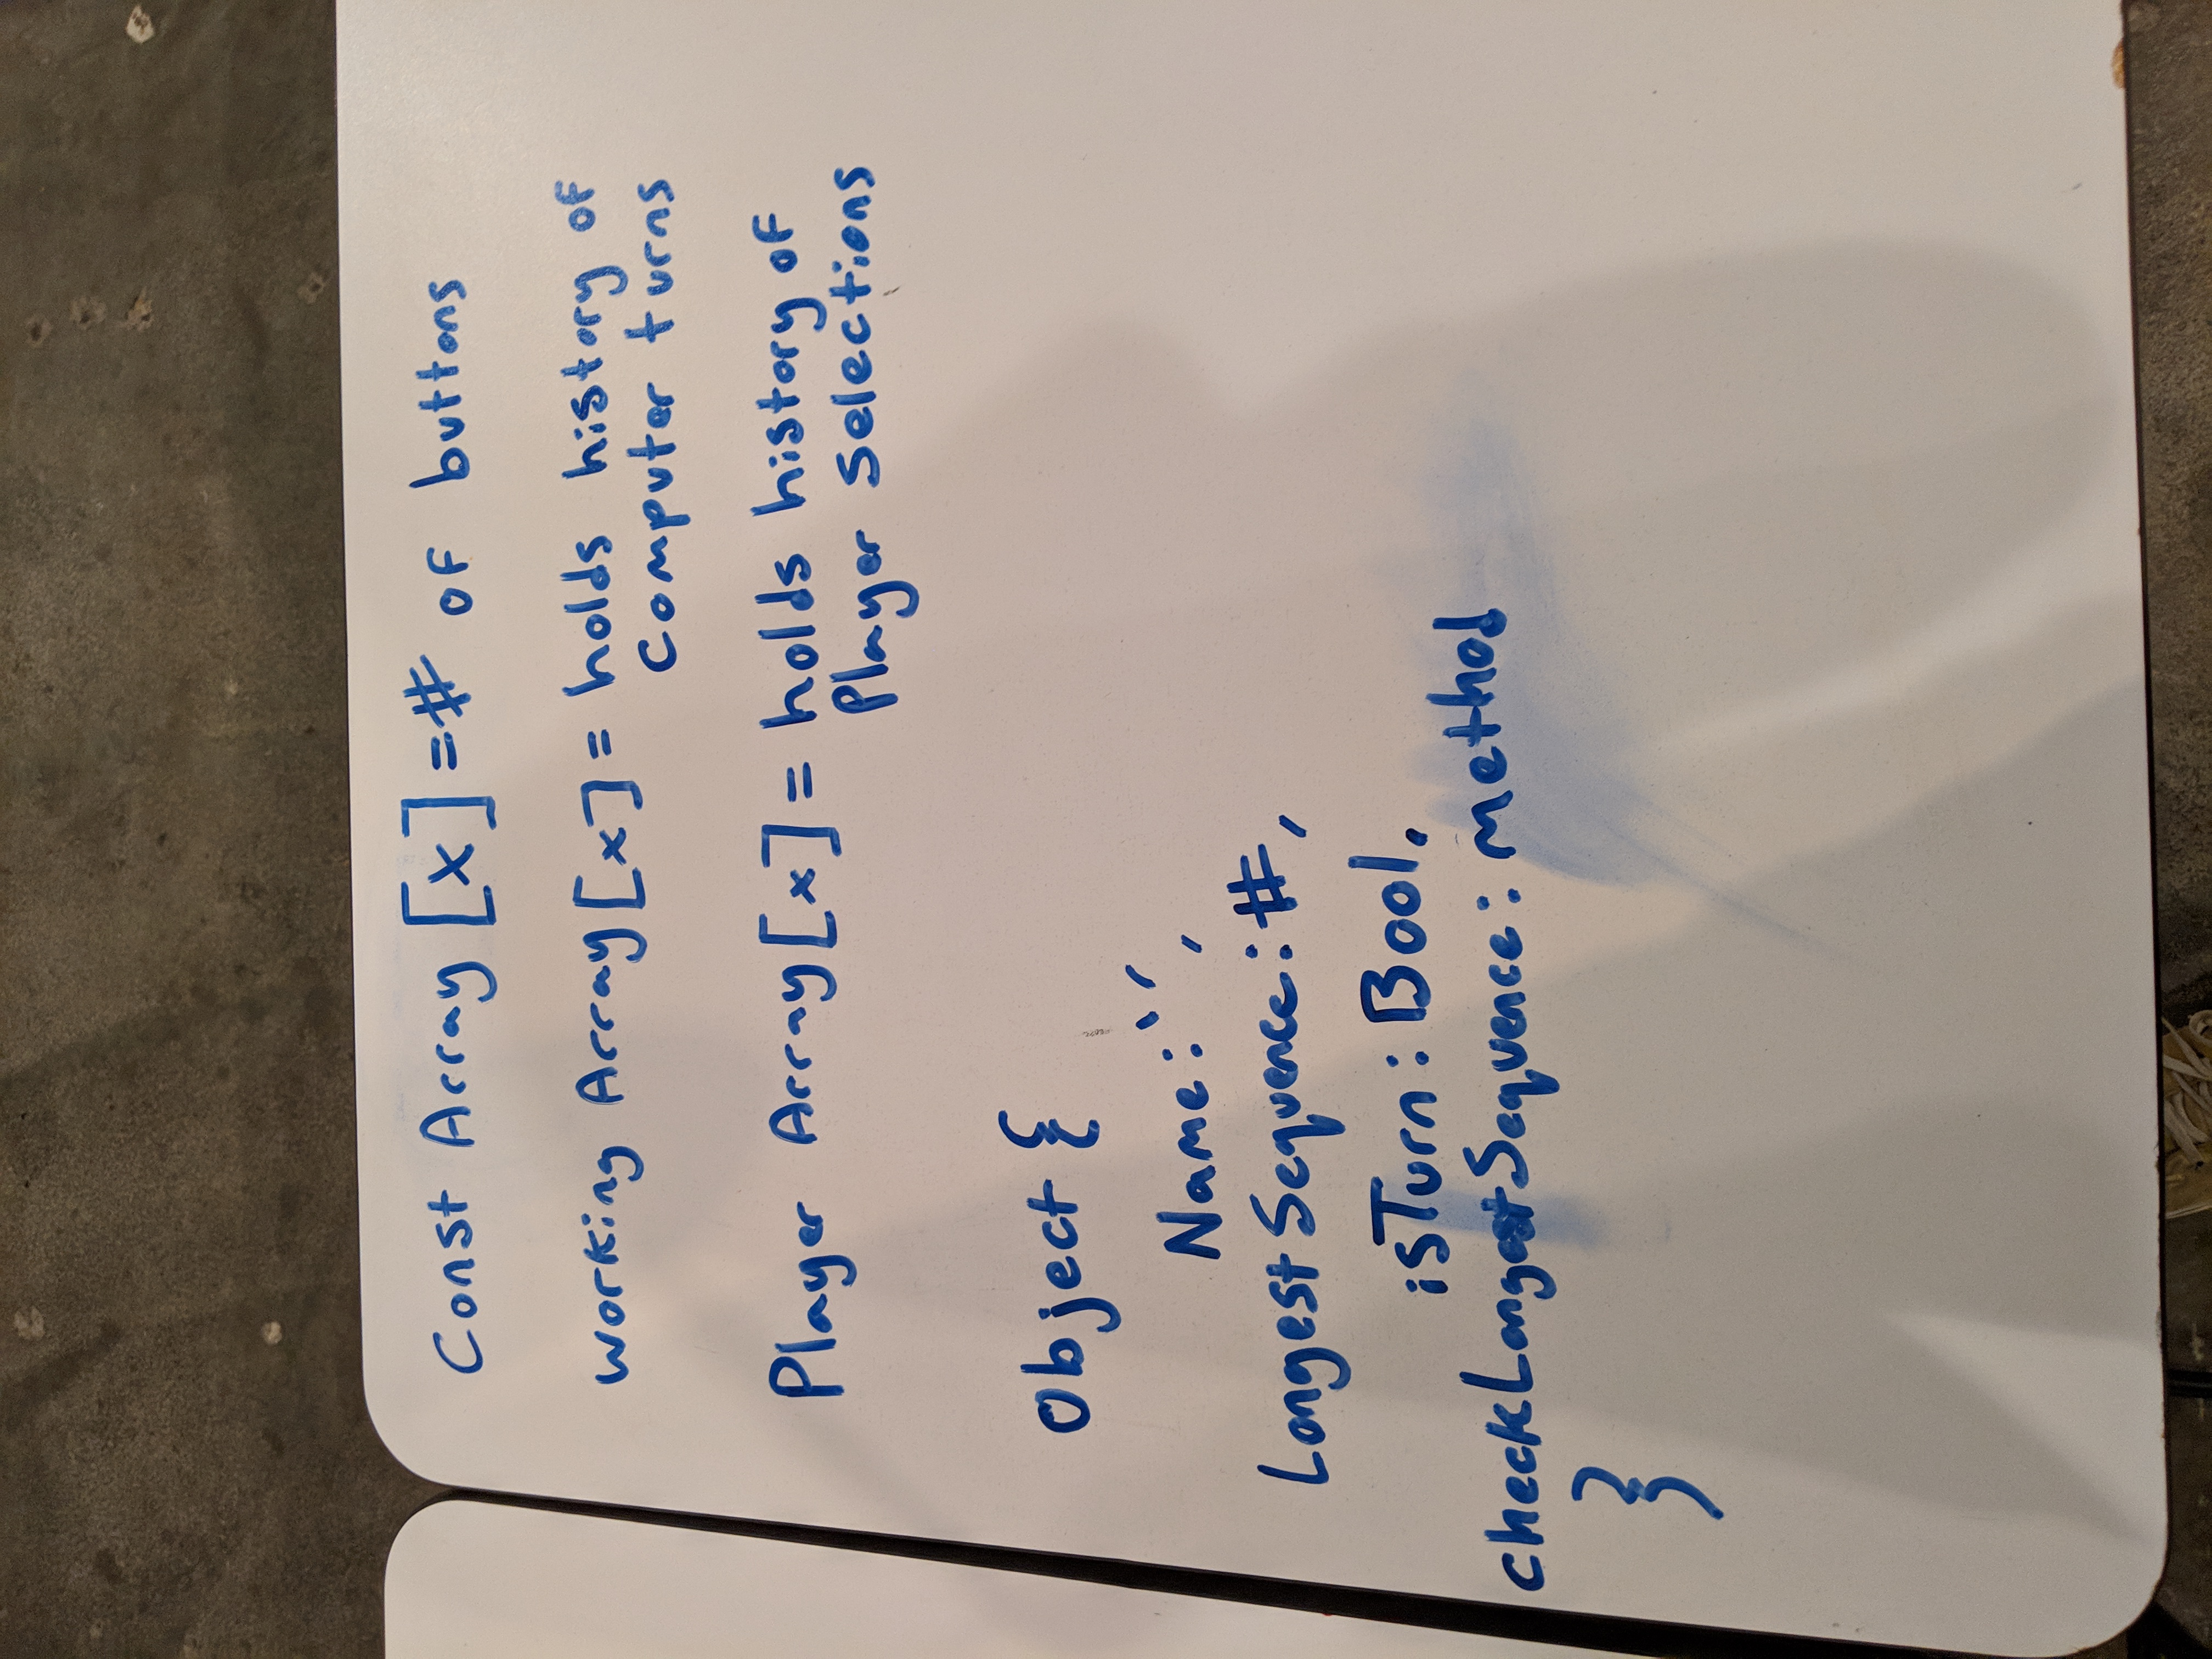 Const Array [x] = # of buttons
Working Array [x] = holds history of
Computer turns
Player Array [x] = holds history of
Player Selections
Object {
Name: '',
Longest Sequence: #,
isTurn: Bool,
checkLongestSequence: method
}